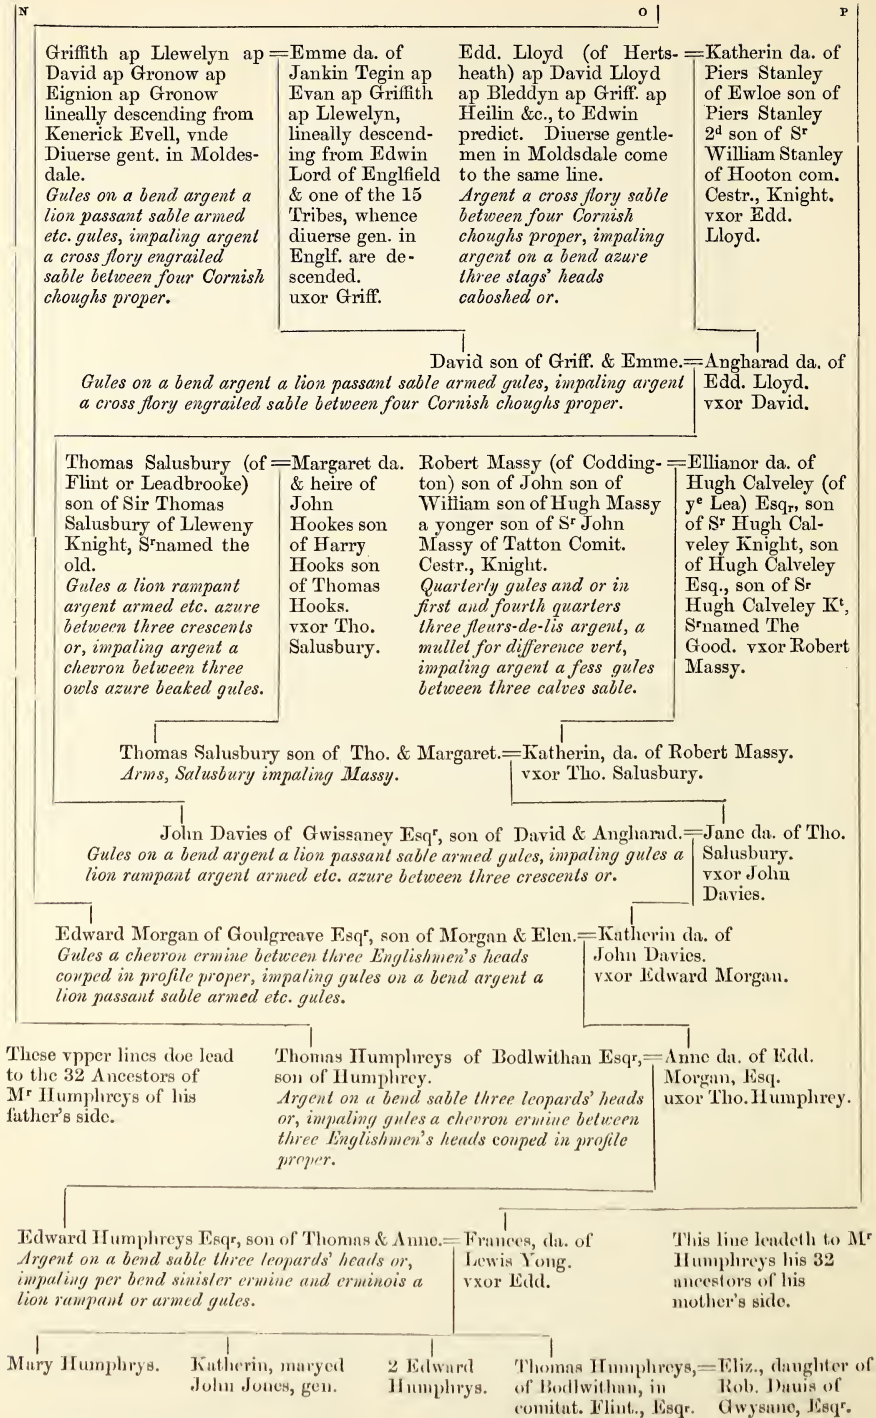 N O P
Griffith ap Llewelyn ap
David ap Gronow ap
Eignion ap Gronow
lineally descending from
Kenerick Evell, vnde
Diuerse gent. in Moldes-
dale.
Gules on a bend argent a
lion passant sable armed
etc. gules, impaling argent
a cross flory engrailed
sable between four Cornish
choughs proper.
=Emme da. of
Jankin Tegin ap
Evan ap Griffith
ap Llewelyn,
lineally descend-
ing from Edwin
Lord of Englfield
& one of the 15
Tribes, whence
diuerse gen. in
Englf. are de-
scended.
uxor Griff.
Edd. Lloyd (of Herts-
heath) ap David Lloyd
ap Bleddyn ap Griff. ap
Heilin &c., to Edwin
predict. Diuerse gentle-
men in Moldsdale come
to the same line.
Argent a cross flory sable
between four Cornish
choughs proper, impaling
argent on a bend azure
three stags' heads
caboshed or.
=Katherin da. of
Piers Stanley
of Ewloe son of
Piers Stanley
2d son of Sr
William Stanley
of Hooton com.
Cestr., Knight.
vxor Edd.
Lloyd.
David son of Griff. & Emme.=
Gules on a bend argent a lion passant sable armed gules, impaling argent
a cross flory engrailed sable between four Cornish choughs proper.
Angharad da. of
Edd. Lloyd.
vxor David.
Thomas Salusbury (of
Flint or Leadbrooke)
son of Sir Thomas
Salusbury of Lleweny
Knight, Srnamed the
old.
Gules a lion rampant
argent armed etc. azure
between three crescents
or, impaling argent a
chevron between three
owls azure beaked gules.
=Margaret da.
& heire of
John
Hookes son
of Harry
Hooks son
of Thomas
Hooks.
vxor Tho.
Salusbury.
Robert Massy (of Codding-
ton) son of John son of
William son of Hugh Massy
a yonger son of Sr John
Massy of Tatton Comit.
Cestr., Knight.
Quarterly gules and or in
first and fourth quarters
three fleurs-de-lis argent, a
mullet for difference vert,
impaling argent a fess gules
between three calves sable.
=Ellianor da. of
Hugh Calveley (of
ye Lea) Esqr, son
of Sr Hugh Cal-
veley Knight, son
of Hugh Calveley
Esq., son of Sr
Hugh Calveley Kt,
Srnamed The
Good. vxor Robert
Massy.
Thomas Salusbury son of Tho. & Margaret.=
Arms, Salusbury impaling Massy.
Katherin, da. of Robert Massy.
vxor Tho. Salusbury.
John Davies of Gwissaney Esqr, son of David & Angharad.=
Gules on a bend argent a lion passant sable armed gules, impaling gules a
lion rampant argent armed etc. azure between three crescents or.
Jane da. of Tho.
Salusbury.
vxor John
Davies.
Edward Morgan of Goulgreave Esqr, son of Morgan & Elen.=
Gules a chevron ermine between three Englishmen's heads
couped in profile proper, impaling gules on a bend argent a
lion passant sable armed etc. gules.
Katherin da. of
John Davies.
vxor Edward Morgan.
These vpper lines doe lead
to the 32 Ancestors of
Mr Humphreys of his
father's side.
Thomas Humphreys of Bodlwithan Esqr,=
son of Humphrey.
Argent on a bend sable three leopards' heads
or, impaling gules a chevron ermine between
three Englishmen's heads couped in profile
proper.
Anne da. of Edd.
Morgan, Esq.
uxor Tho. Humphrey.
Edward Humphreys Esqr, son of Thomas & Anne.=
Argent on a bend sable three leopards' heads or,
impaling per bend sinister ermine and erminois a
lion rampant or armed gules.
Frances, da. of
Lewis Yong.
vxor Edd.
This line leadeth to Mr
Humphreys his 32
ancestors of his
mother's side.
Mary Humphrys.
Katherin, maryed
John Jones, gen.
2 Edward
Humphrys.
Thomas Humphreys,=
of Bodlwithan, in
comitat. Flint., Esqr.
Eliz., daughter of
Rob. Dauis of
Gwysane, Esqr.